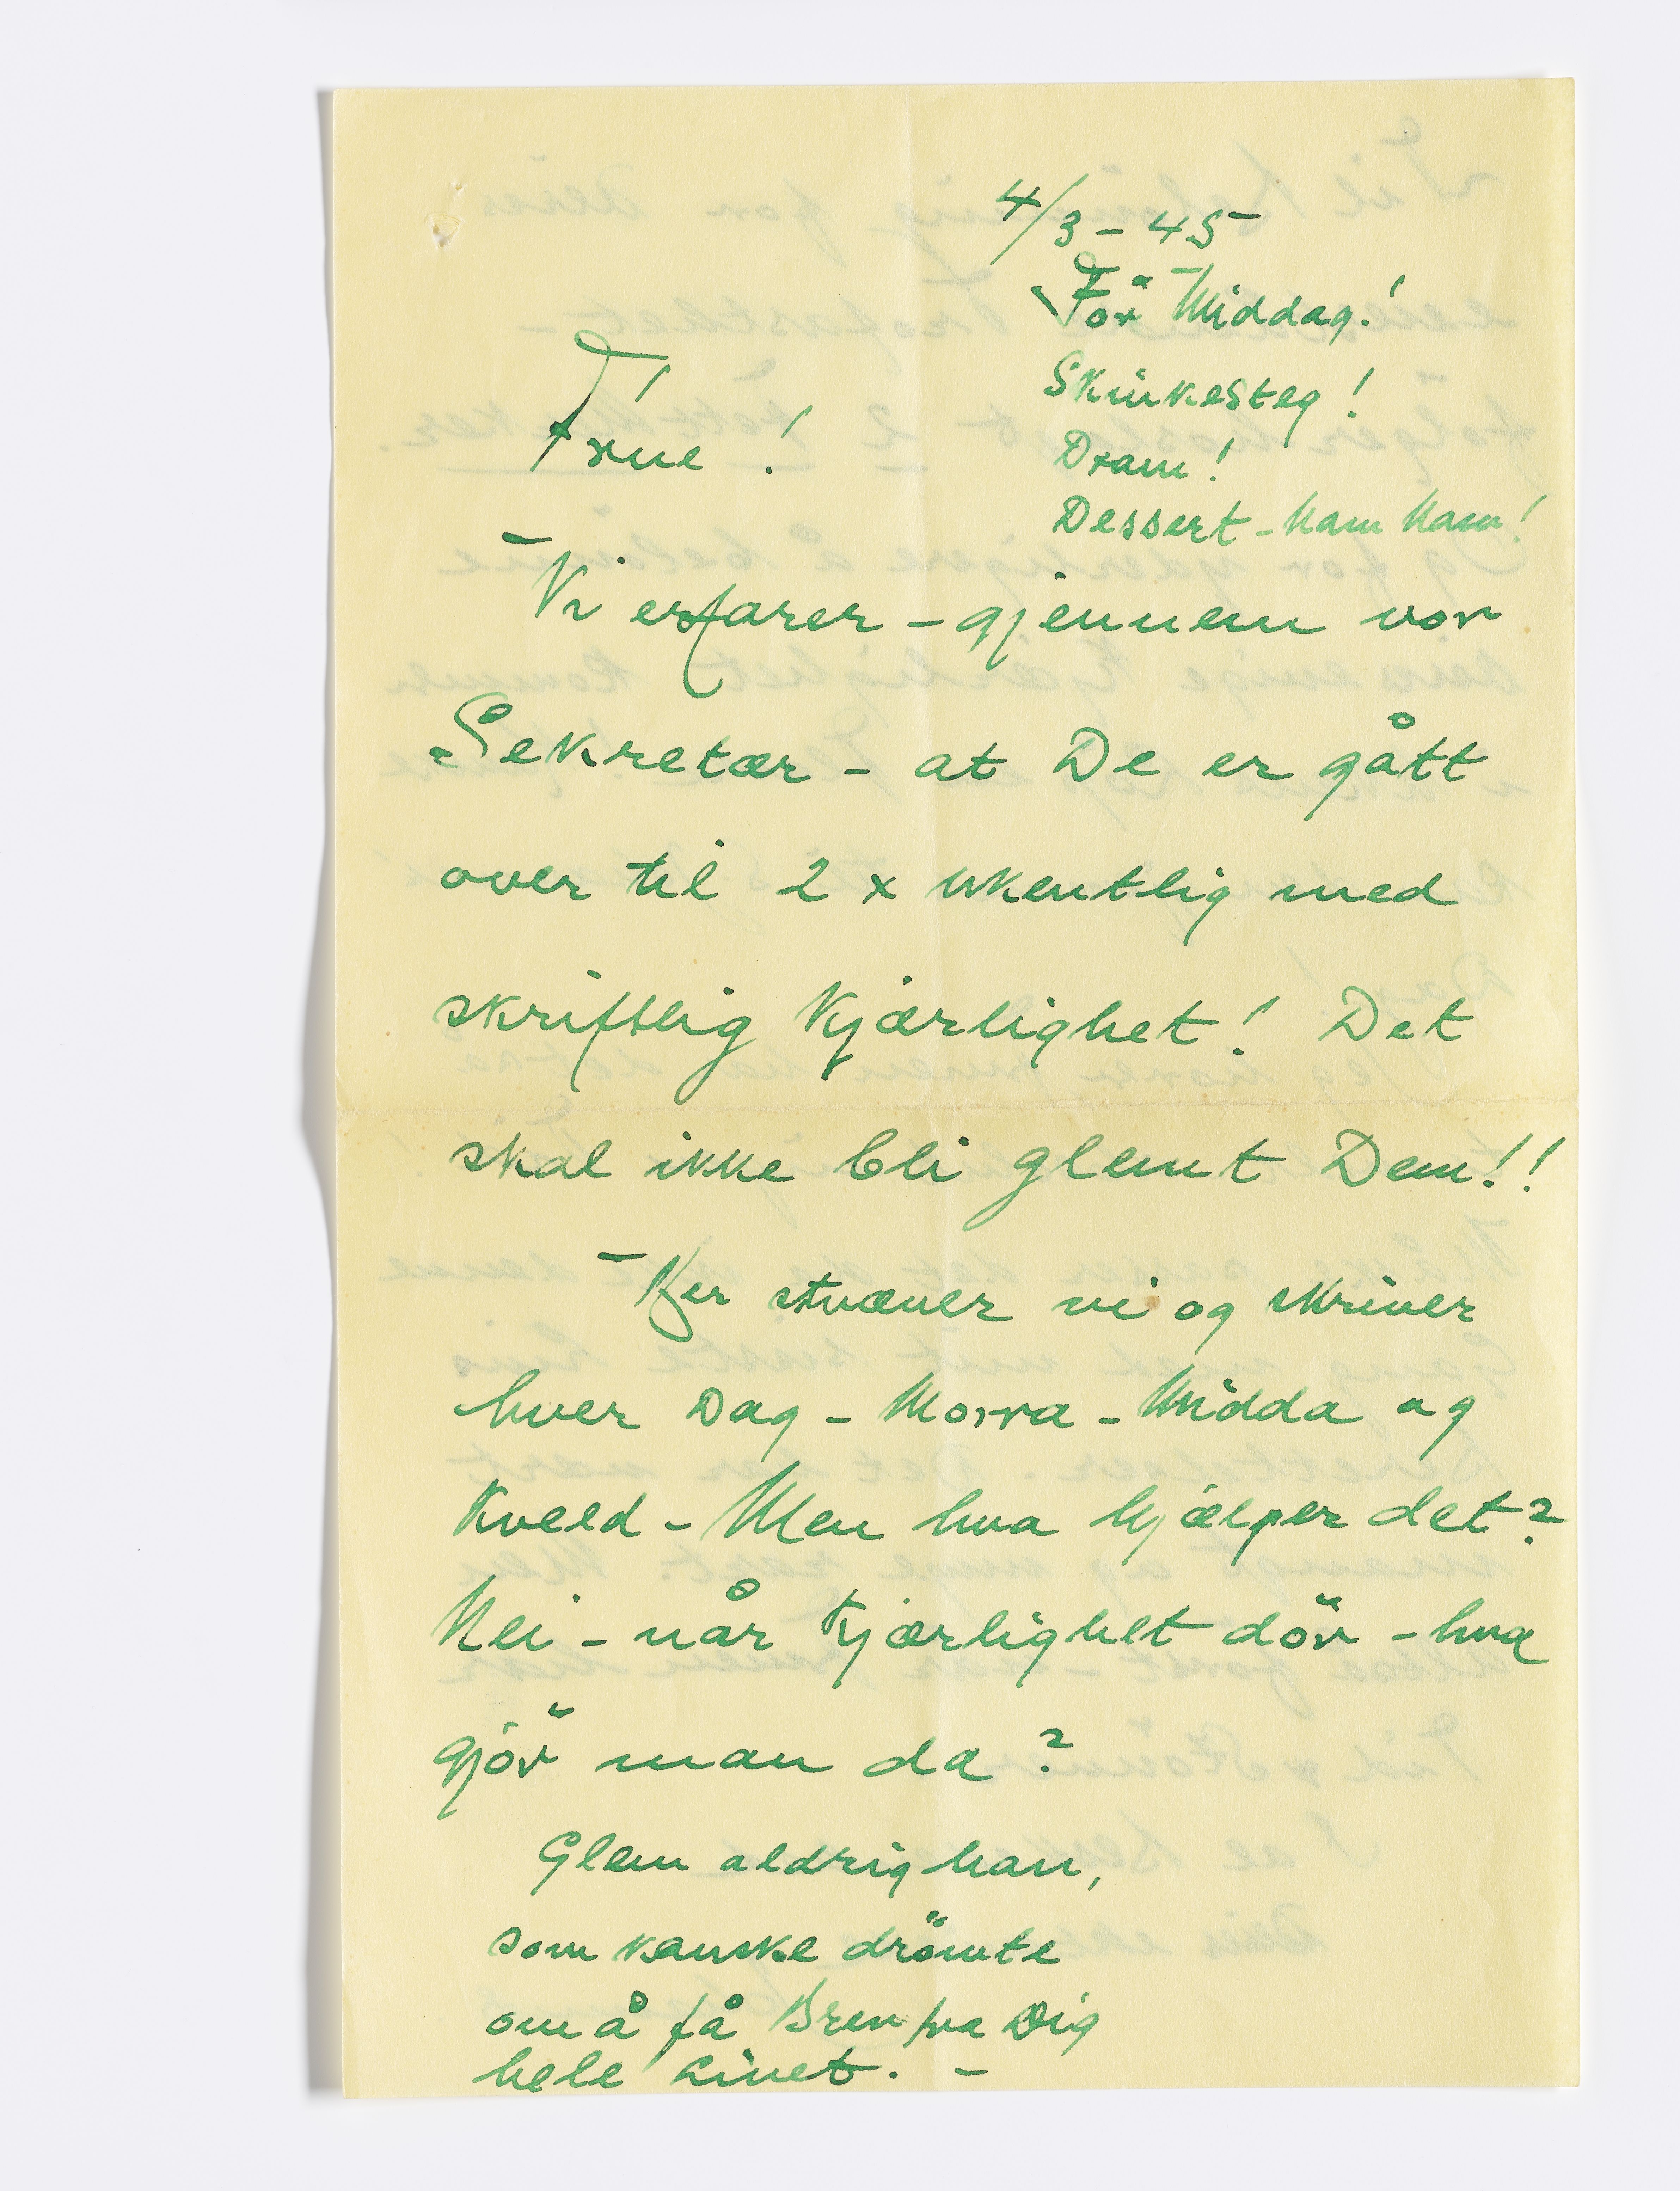 4/3-45
För Middag!
Skinkesteg!
Dram!
Dessert - Nam Nam!
Frue!
- Vi erfarer - gjennem vor
Sekretær - at De er gått
over til 2 x ukentlig med
skriftlig Kjærlighet! Det
skal ikke bli glemt Dem!!
- Her stræver vi og skriver
hver Dag - Morra - Midda og
Kveld - Men hva hjælper det?
Nei - når Kjærlighet dör - hva
gjör man da?
Glem aldrig han,
som kanske drömte
om å få Brev fra Dig
hele Livet. -